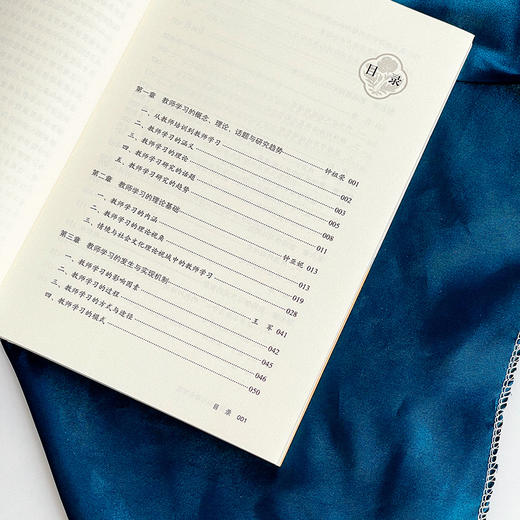 目录
第一章 教师学习的概念、理论、话题与研究趋势 钟祖荣 001
一、从教师培训到教师学习 002
二、教师学习的涵义 003
三、教师学习的理论 005
四、教师学习研究的话题 008
五、教师学习研究的趋势 011
第二章 教师学习的理论基础 钟亚妮 013
一、教师学习的内涵 013
二、教师学习的理论视角 019
三、情境与社会文化理论视域中的教师学习 028
第三章 教师学习的发生与实现机制 王军 041
一、教师学习的影响因素 042
二、教师学习的过程 045
三、教师学习的方式与途径 046
四、教师学习的模式 050
目录 001